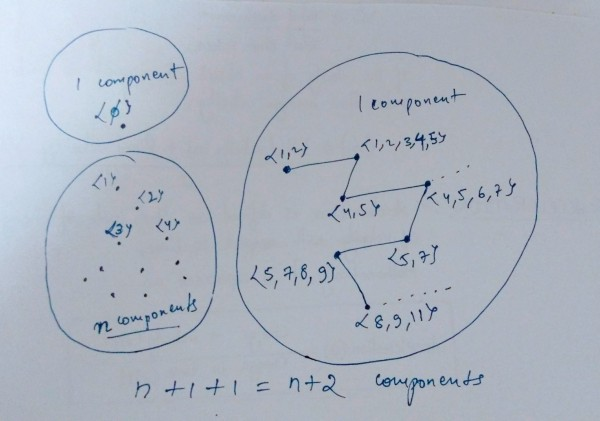 1 component
{ϕ}
{1}
{2}
{3}
{4}
n components
1 component
{1,2}
{1,2,3,4,5}
{4,5}
{4,5,6,7}
{5,7}
{5,7,8,9}
{8,9,11}
n+1+1 = n+2 components